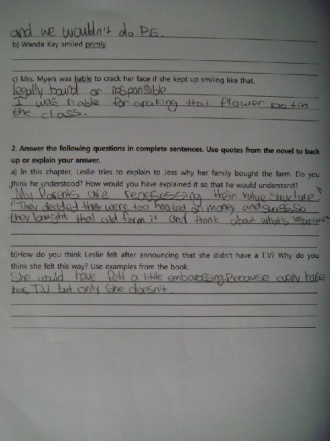 and we wouldn't do P.E.
b) Wanda Kay smiled primly.
c) Mrs. Myers was liable to crack her face if she kept up smiling like that.
legally bound or responsible
I was liable for that flower in
the class.
2. Answer the following questions in complete sentences. Use quotes from the novel to back
up or explain your answer.
a) In this chapter, Leslie tries to explain to Jess why her family bought the farm. Do you
think he understood? How would you have explained it so that he would understand?
My Parents are reassessing their value structure
"They decided they were too hooked on money and success so
they bought that old farm it and think about what's important"
b)How do you think Leslie felt after announcing that she didn't have a T.V? Why do you
think she felt this way? Use examples from the book.
She would have felt a little embarassing Because every
has T.V but only she doesn't.